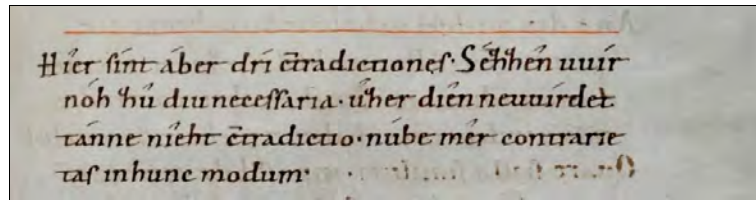 Híer ſínt áber drí c̄tradictioneſ· Séhhén uuír
nóh hú diu neceſſaria· úher díen neuuírdet
tánne níeht c̄tradictio· núbe mér contrarie
taſ in hunc modum·